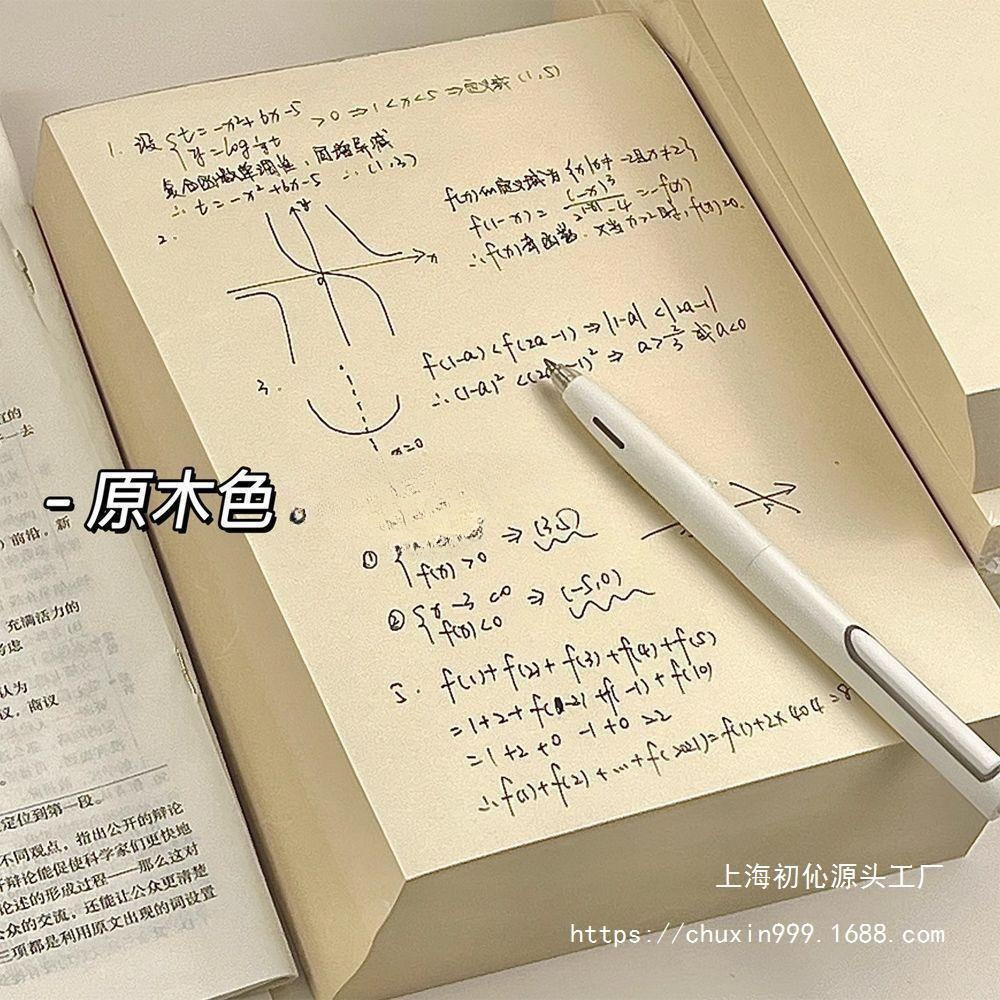 1. 设 { t = -x²+6x-5
y = log⅓t
>0 ⇒ 1<x<5 ⇒ 定义域 (1,5)
复合函数单调性,同增异减
∴ t = -x²+6x-5 ∴ (1,3)
2.
y
x
0
f(x)的定义域为{x|x≠-2且x≠2}
f(-x) = (-x)³ / -4 = -f(x)
∴ f(x)奇函数. 又当x>2时, f(x)>0.
3.
x=0
f(1-a)<f(2a-1) ⇒ |1-a|<|2a-1|
∴ (1-a)² < ⇒ a>2/3 或 a<0
- 原木色
① {
f(x)>0 ⇒ (3,5)
② { x-3<0
f(x)<0 ⇒ (-5,0)
5. f(1)+f(2)+f(3)+f(4)+f(5)
=1+2+f(-2)+f(-1)+f(0)
=1+2+0-1+0=2
∴ f(1)+f(2)+…+f(2021)=f(1)+2×404=8
前沿,新
充满活力的
考虑
认为
议,商议
定位到第一段。
不同观点,指出公开的辩论
辩论能促使科学家们更快地
论述的形成过程——那么这对
公众的交流,还能让公众更清楚
三项都是利用原文出现的词设置
上海初伈源头工厂
https://chuxin999.1688.com